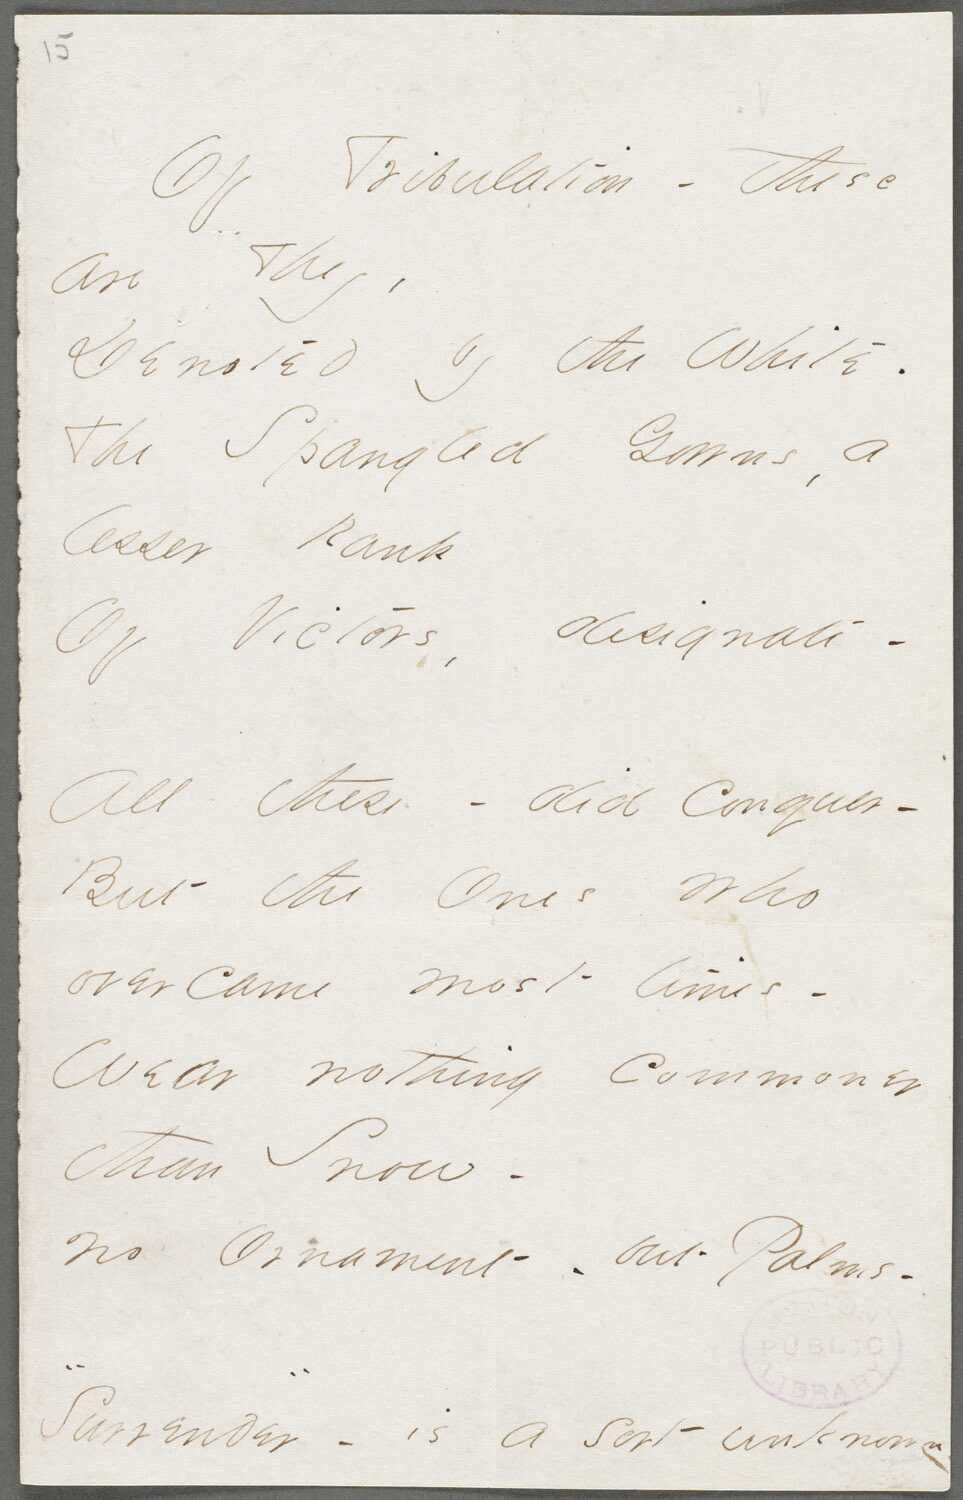 15
Of Tribulation - these
are They,
Denoted by the White.
The Spangled Gowns, a
lesser Rank
Of Victors, designate -
All these - did conquer -
But the Ones who
overcame most times -
Wear nothing commoner
than Snow -
No Ornament - but Palms -
PUBLIC
LIBRARY
"Surrender" - is a sort unknown